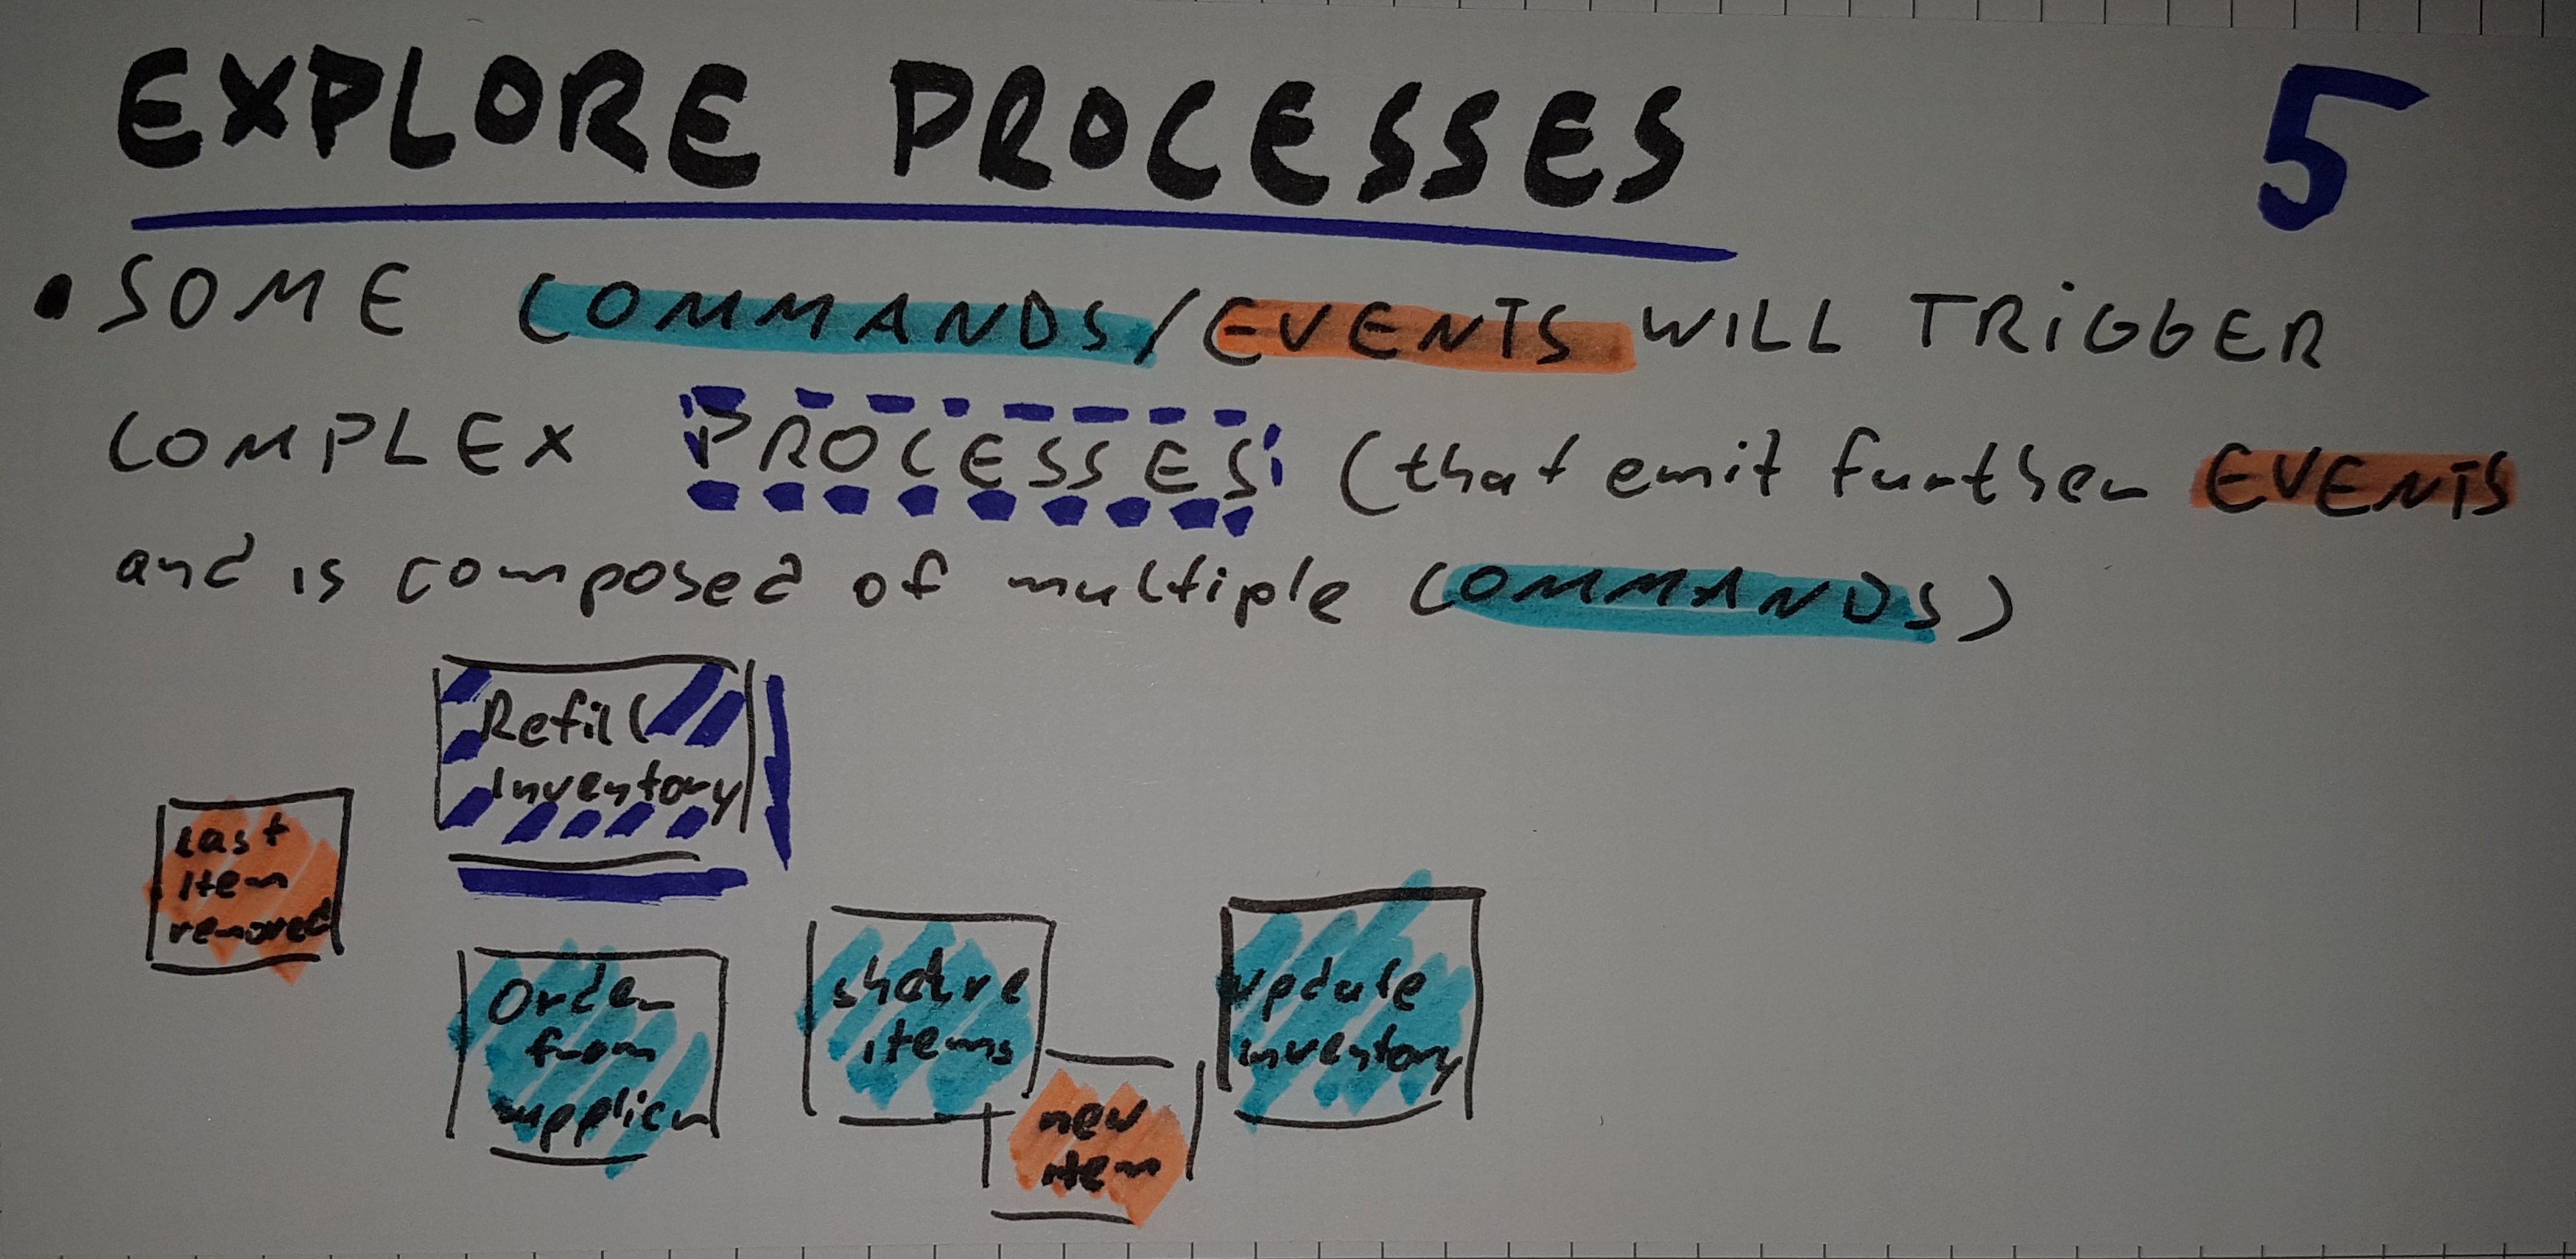 EXPLORE PROCESSES 5
• SOME COMMANDS/EVENTS WILL TRiGGER
COMPLEX PROCESSES (that emit further EVENTS
and is composed of multiple COMMANDS)
Refill
inventory
Last
item
removed
Order
from
supplier
items
new
item
update
inventory